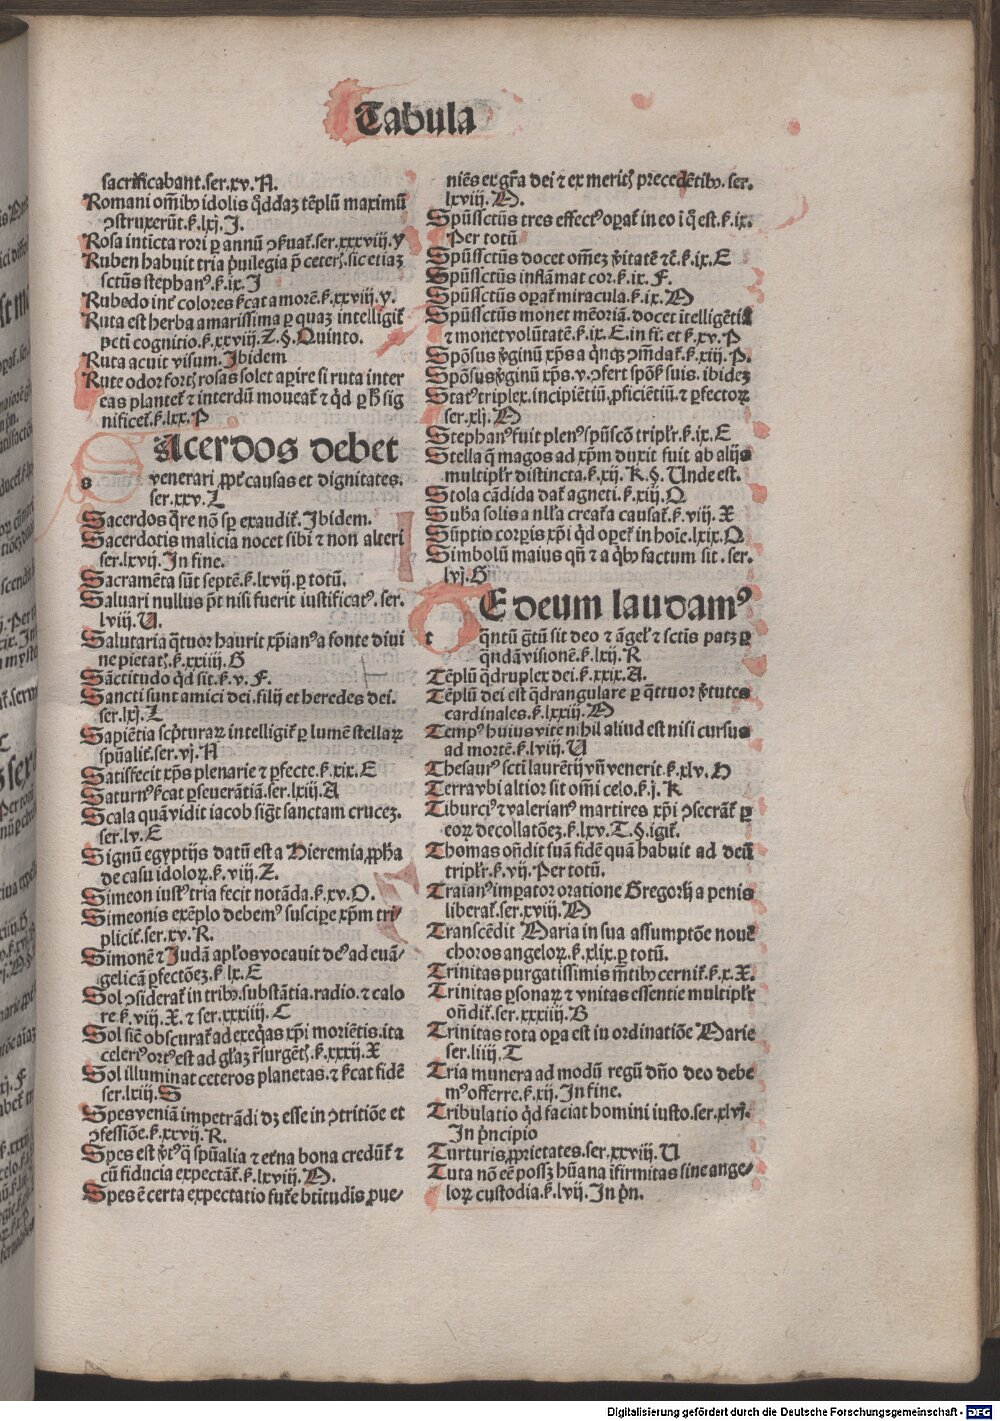 Tabula
sacrificabant.ser.xv.N.
Romani om̄ib⁹ idolis q̄ddaꝫ tēplū maximū
ↄstruxerūt.ẜ.lxj.I.
Rosa inticta rori ꝑ annū ↄẜuat̄.ser.xxxviij.y
Ruben habuit tria p̄uilegia p̄ ceterꝭ.sic etiaꝫ
sctūs stephan⁹.ẜ.ix.I
Rubedo int̄ colores ẜcat amorē.ẜ.xxviij.y.
Ruta est herba amarissima ꝑ quaꝫ intelligit̄
pcti cognitio.ẜ.xxviij.Z.§.Quinto.
Ruta acuit visum. Ibidem
Rute odor fortꝭ rosas solet aꝑire si ruta inter
eas plantet̄ ⁊ interdū moueat̄ ⁊ qd̄ ꝑ h̄ sig
nificet̄.ẜ.lxx.P
SAcerdos debet
venerari ꝓpt̄ causas et dignitates.
ser.xxv.L
Sacerdos q̄re nō sꝑ exaudit̄. Ibidem.
Sacerdotis malicia nocet sibi ⁊ non alteri
ser.lxvij. In fine.
Sacramēta sūt septē.ẜ.lxvij.ꝑ totū.
Saluari nullus pōt nisi fuerit iustificat⁹. ser.
lviij.U.
Salutaria q̄tuor haurit xp̄ian⁹ a fonte diui
ne pietatꝭ.ẜ.xxiiij.G
Sāctitudo qd̄ sit.ẜ.v.F.
Sancti sunt amici dei.filij et heredes dei.
ser.lxj.L
Sapiētia scp̄turaꝝ intelligit̄ ꝑ lumē stellaꝝ
spūalit̄.ser.vj.N
Satisfecit xp̄s plenarie ⁊ ꝑfecte.ẜ.xix.E
Saturn⁹ ẜcat ꝑseuerātiā.ser.lxiij.A
Scala quā vidit iacob sigt̄ sanctam crucez.
ser.lv.E
Signū egyptijs datū est a Hieremia ꝓph̄a
de casu idoloꝝ.ẜ.viij.Z.
Simeon iust⁹ tria fecit notāda.ẜ.xv.O.
Simeonis exēplo debem⁹ susciꝑe xp̄m tri/
plicit̄.ser.xv.R.
Simonē ⁊ Judā apl̄os vocauit de⁹ ad euā/
gelicā ꝑfectōez.ẜ.lx.E
Sol ↄsiderat̄ in trib⁹.substātia.radio.⁊ calo
re.ẜ.viij.X.⁊ ser.xxxiiij.C
Sol siē obscurat̄ ad exeq̄as xp̄i moriētis.ita
celeri⁹ ort⁹ est ad gl̄az r̄surgētꝭ.ẜ.xxxij.X
Sol illuminat ceteros planetas.⁊ ẜcat fidē
ser.lxiij.S
Spes veniā impetrādi dꝫ esse in ↄtritiōe et
ↄfessiōe.ẜ.xxvij.R.
Spes est v̄t⁹ q̄ spūalia ⁊ et̄na bona credūt̄ ⁊
cū fiducia expectāt̄.ẜ.lxviij.M.
Spes ē certa expectatio fut̄e btitudis ꝓue/
niēs ex gr̄a dei ⁊ ex meritꝭ precedētib⁹.ser.
lxviij.M.
Spūssctūs tres effect⁹ oꝑat̄ in eo i q̄ est.ẜ.ix.
Per totū
Spūssctūs docet om̄ez v̄itatē ⁊c̄.ẜ.ix.E
Spūssctūs inflāmat cor.ẜ.ix.F.
Spūssctūs oꝑat̄ miracula.ẜ.ix.M
Spūssctūs monet mēoriā.docet ītelligētiā
⁊ monet volūtatē.ẜ.ix.E.in fi. et ẜ.xv.P
Spōsus v̄ginū xp̄s a q̄nqꝫ ↄm̄dat̄.ẜ.xiij.P.
Spōsus v̄ginū xp̄s.v.ↄfert spōẜ suis. ibidez
Stat⁹ triplex.incipiētiū.ꝓficiētiū.⁊ ꝑfectoꝝ
ser.xlj.M
Stephan⁹ fuit plen⁹ spūscō tripl̄r.ẜ.ix.E
Stella q̄ magos ad xp̄m duxit fuit ab alijs
multipl̄r distincta.ẜ.xij.K.§.Unde est.
Stola cādida dat̄ agneti.ẜ.xiij.Q
Sub̄a solis a nll̄a creat̄a causat̄.ẜ.viij.X
Sūptio corꝑis xp̄i qd̄ oꝑet̄ in hoīe.lxix.O.
Simbolū maius qn̄ ⁊ a qb⁹ factum sit.ser.
lvj.G
TE deum laudam⁹
q̄ntū gtū sit deo ⁊ āgel̄ ⁊ sctīs patꝫ ꝑ
q̄ndā visionē.ẜ.lxij.R
Tēplū q̄druplex dei.ẜ.xxix.A.
Tēplū dei est q̄drangulare ꝑ q̄ttuor v̄tutes
cardinales.ẜ.lxxiij.M
Temp⁹ huius vite nihil aliud est nisi cursus
ad mortē.ẜ.lviij.U
Thesaur⁹ scti laurētij vn̄ venerit.ẜ.xlv.H
Terra vbi altior sit om̄i celo.ẜ.j.K
Tiburci⁹ ⁊ valerian⁹ martires xp̄i ↄsecrāt̄ ꝑ
eoꝝ decollatōez.ẜ.lxv.T.§.igit̄.
Thomas on̄dit suā fidē quā habuit ad deū
tripl̄r.ẜ.vij. Per totū.
Traian⁹ imꝑator oratione Gregorij a penis
liberat̄.ser.xviij.M
Transcēdit Maria in sua assumptōe nouē
choros angeloꝝ.ẜ.xlix.ꝑ totū.
Trinitas purgatissimis mētib⁹ cernit̄.ẜ.x.X.
Trinitas ꝑsonaꝝ ⁊ vnitas essentie multipl̄r
on̄dit̄.ser.xxxiiij.B
Trinitas tota oꝑa est in ordinatiōe Marie
ser.liiij.T
Tria munera ad modū regū dn̄o deo debe
m⁹ offerre.ẜ.xij. In fine.
Tribulatio qd̄ faciat homini iusto.ser.xlvj.
In p̄ncipio
Turturis ꝓprietates.ser.xxviij.U
Tuta nō eē possꝫ hūana īfirmitas sine ange/
loꝝ custodia.ẜ.lvij. In p̄n.
Digitalisierung gefördert durch die Deutsche Forschungsgemeinschaft - DFG